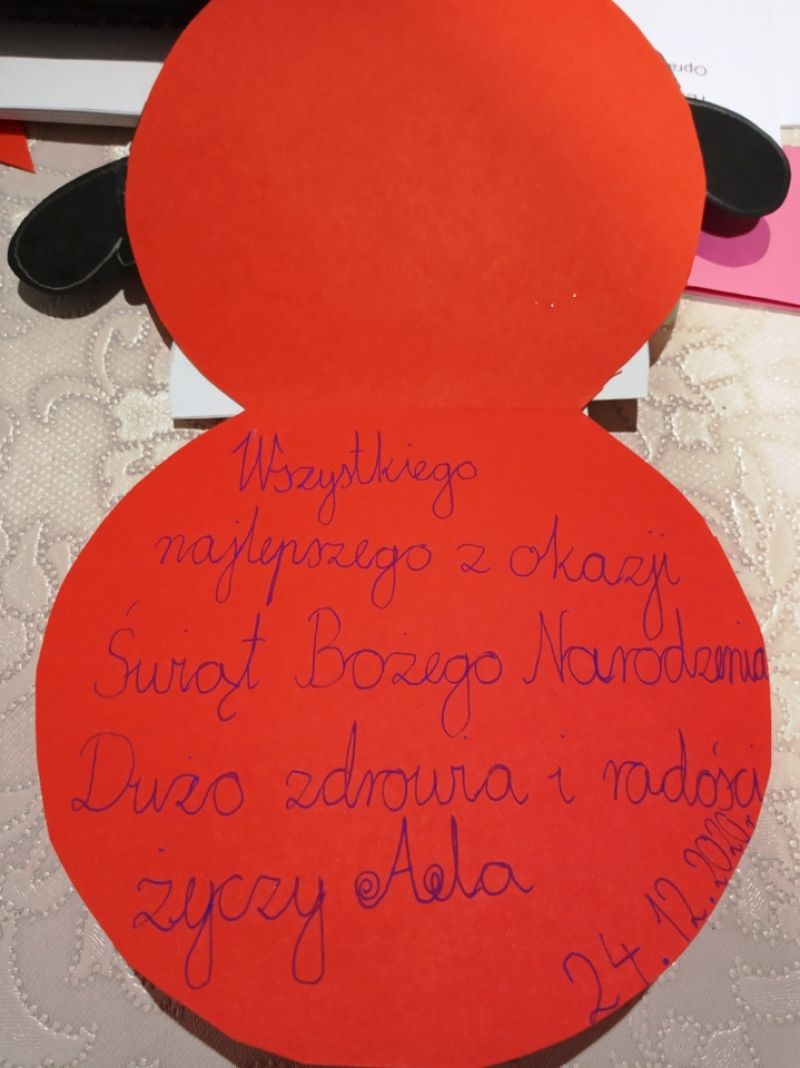 Wszystkiego
najlepszego z okazji
Świąt Bożego Narodzenia
Dużo zdrowia i radości
życzy Ada
24.12.2020r.